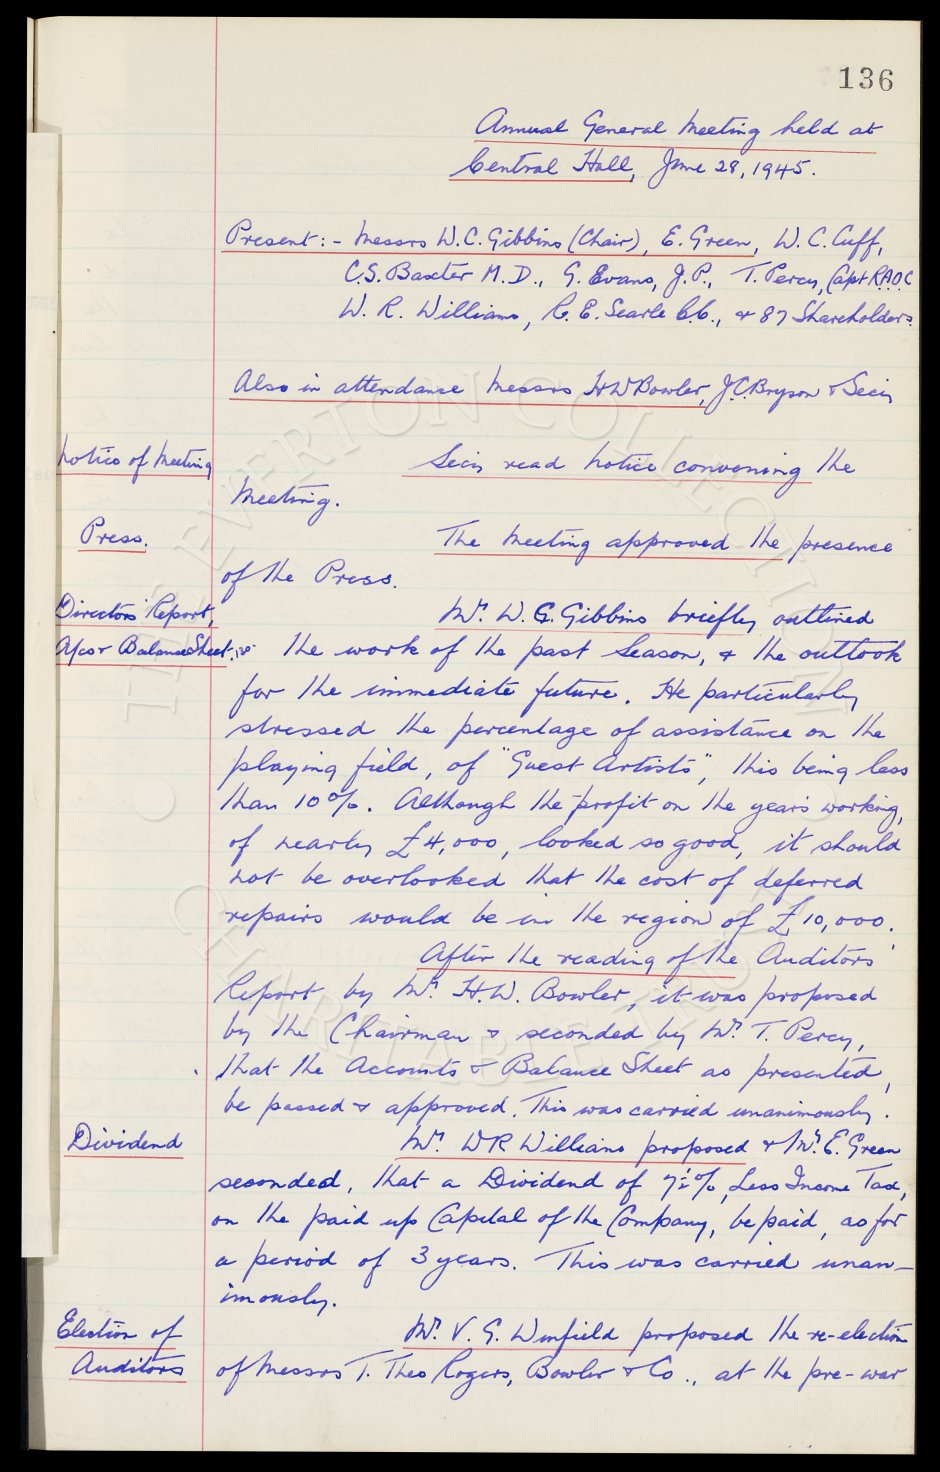 136
Annual General Meeting held at
Central Hall, June 28, 1945.
Present:- Messrs W.C. Gibbins (Chair), E. Green, W.C. Cuff,
C.S. Baxter M.D., G. Evans, J.P., T. Percy, Capt R.A.O.C
W.R. Williams, R.E. Searle C.C., & 87 Shareholders.
Also in attendance Messrs H W Bowler, J.C. Bryson & Secy
Notice of Meeting
Secy read notice convening the
Meeting.
Press.
The Meeting approved the presence
of the Press.
Directors' Report,
A/cs & Balance Sheet.
Mr. W.C. Gibbins briefly outlined
the work of the past season, & the outlook
for the immediate future. He particularly
stressed the percentage of assistance on the
playing field, of "Guest Artists", this being less
than 10%. Although the profit on the years working,
of nearly £4,000, looked so good, it should
not be overlooked that the cost of deferred
repairs would be in the region of £10,000.
After the reading of the Auditors
Report by Mr. H.W. Bowler, it was proposed
by the Chairman & seconded by Mr. T. Percy,
that the Accounts & Balance Sheet as presented,
be passed & approved. This was carried unanimously.
Dividend
Mr. W R Williams proposed & Mr. E. Green
seconded, that a Dividend of 7½%, Less Income Tax,
on the paid up Capital of the Company, be paid, as for
a period of 3 years. This was carried unan-
imously.
Election of
Auditors
Mr. V.G. Winfield proposed the re-election
of Messrs T. Theo Rogers, Bowler & Co., at the pre-war
THE EVERTON COLLECTION
CHARITABLE TRUST